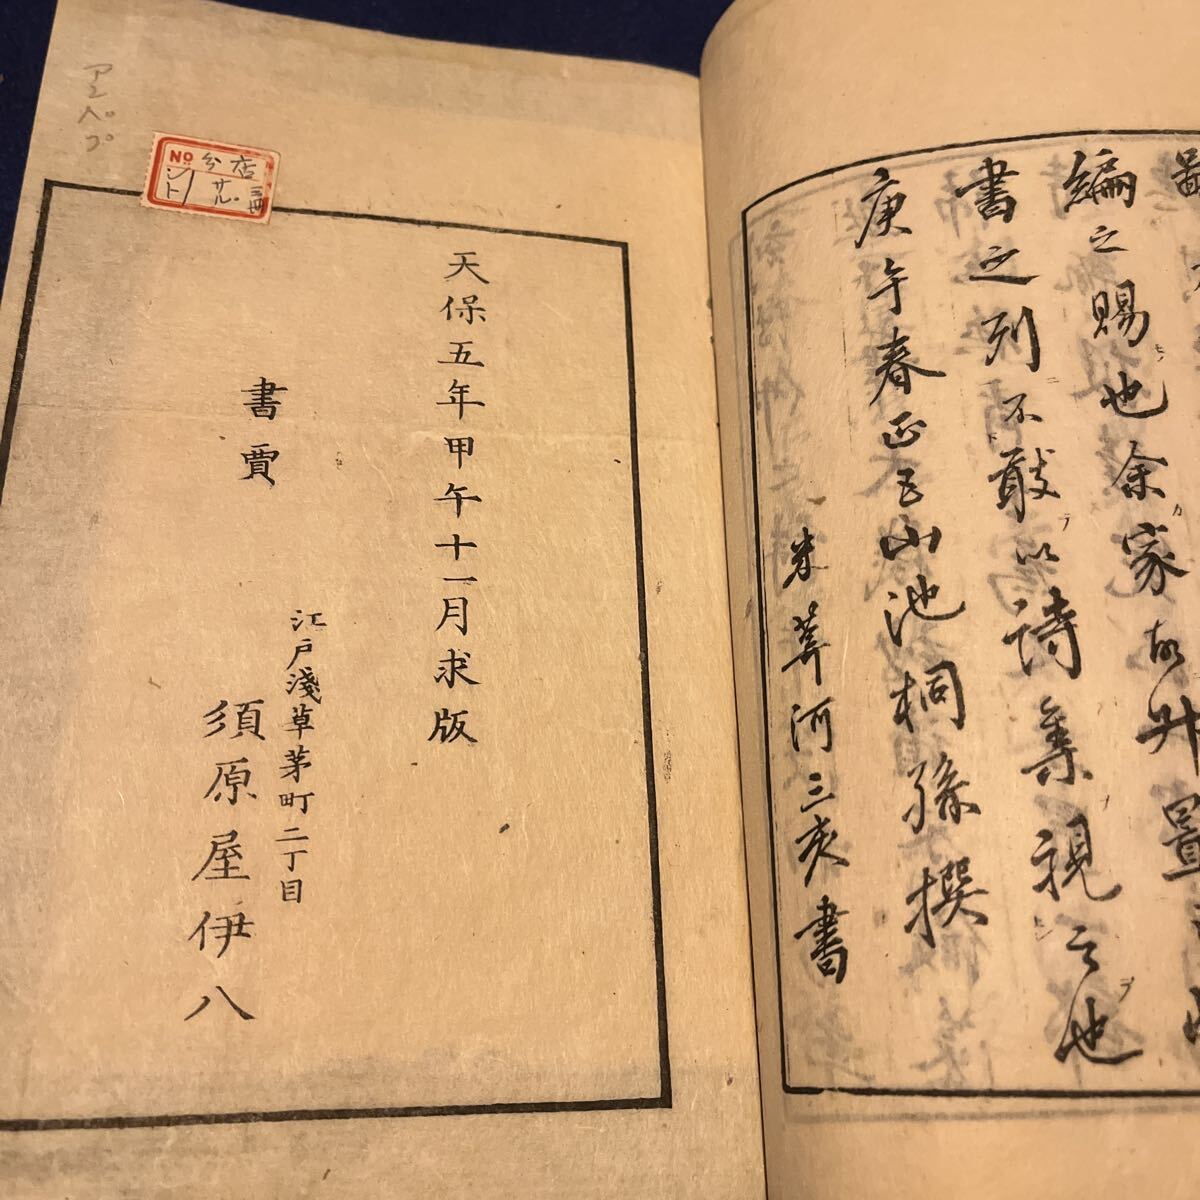 編之賜也余家故升置
書之列不敢以詩集視之也
庚午春正五山池桐孫撰
米葊河三亥書
天保五年甲午十一月求版
書賈
江戸淺草茅町二丁目
須原屋伊八
No
分店
サル
三冊
ント
アン
ペ
プ